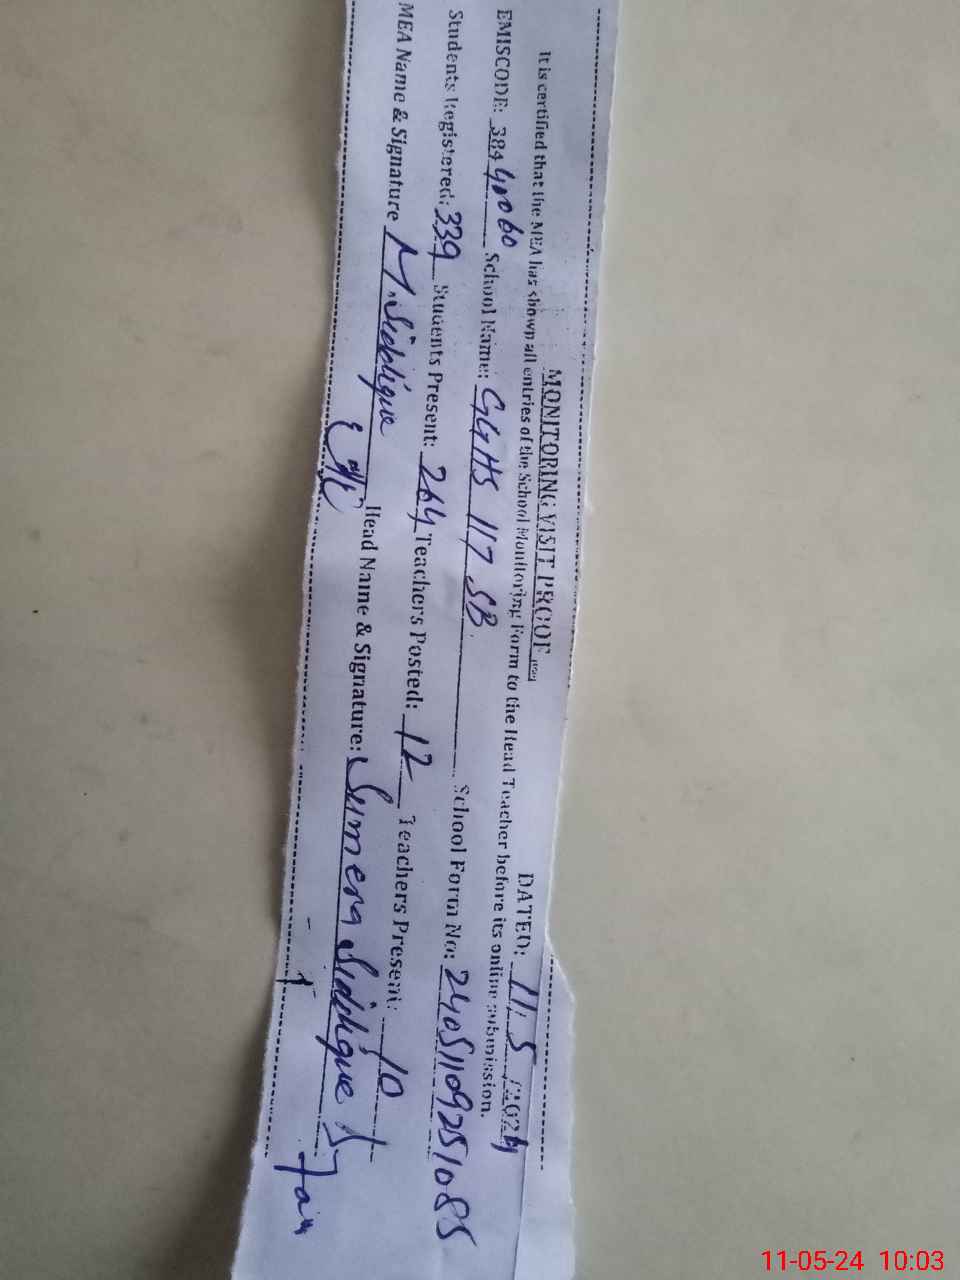 MONITORING VISIT PROOF
DATED: 11/5/2024
It is certified that the MEA has shown all entries of the School Monitoring Form to the Head Teacher before its online submission.
EMISCODE: 38440060 School Name: GGHS 117 SB. School Form No: 240511092510 85
Students Registered: 339 Students Present: 264 Teachers Posted: 12 Teachers Present: 10
MEA Name & Signature M. Siddique Head Name & Signature: Sumera Siddique
11-05-24 10:03